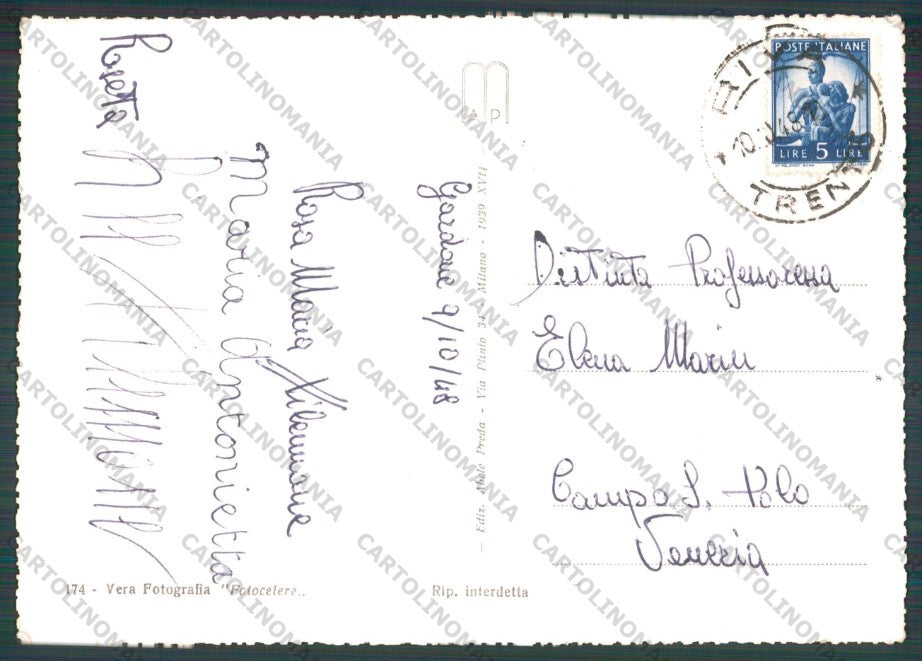 Rosetta
Maria Antonietta
Rosa Maria
Gardone 9/10/48
Ediz. Abele Preda - Via Plinio 34 - Milano - 1939 XVII
174 - Vera Fotografia "Fotocelere„
Rip. interdetta
POSTE ITALIANE
LIRE 5 LIRE
RIVA
TRENTO
Distinta Professoressa
Elena Marin
Campo S. Polo
Venezia
CARTOLINOMANIA